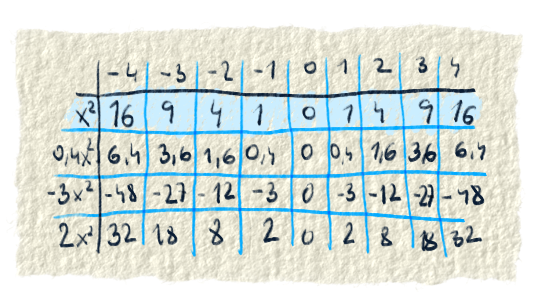 -4 -3 -2 -1 0 1 2 3 4
x² 16 9 4 1 0 1 4 9 16
0,4x² 6,4 3,6 1,6 0,4 0 0,4 1,6 3,6 6,4
-3x² -48 -27 -12 -3 0 -3 -12 -27 -48
2x² 32 18 8 2 0 2 8 18 32